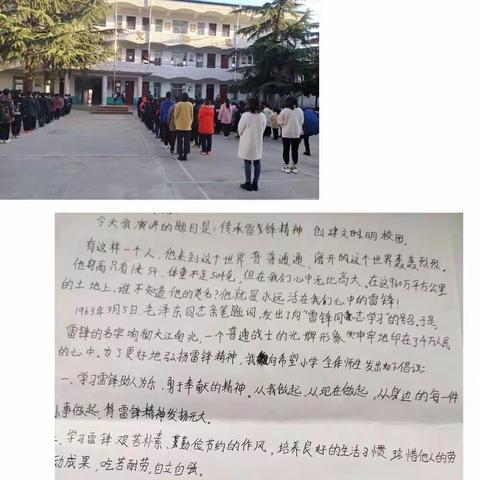 今天我演讲的题目是：传承雷锋精神 创建文明校园。
有这样一个人，他来到这个世界 普普通通，离开的这个世界轰轰烈烈。
他身高只有1米54，体重不足50千克，但在我们心中无比高大。在这960万平方公里
的土地上，谁不知道他的英名？他就是永远活在我们心中的雷锋！
1963年3月5日，毛泽东同志亲笔题词，发出了向“雷锋同志学习”的号召。于是，
雷锋的名字响彻大江南北，一个普通战士的光辉形象 牢牢地印在了千万人民
的心中。为了更好地弘扬雷锋精神，我向希望小学 全体师生 发出如下倡议：
一、学习雷锋助人为乐、勇于奉献的精神。从我做起，从现在做起，从身边的每一件
小事做起，将雷锋精神发扬光大。
二、学习雷锋 艰苦朴素、勤俭节约的作风，培养良好的生活习惯，珍惜他人的劳
动成果，吃苦耐劳，自立自强。